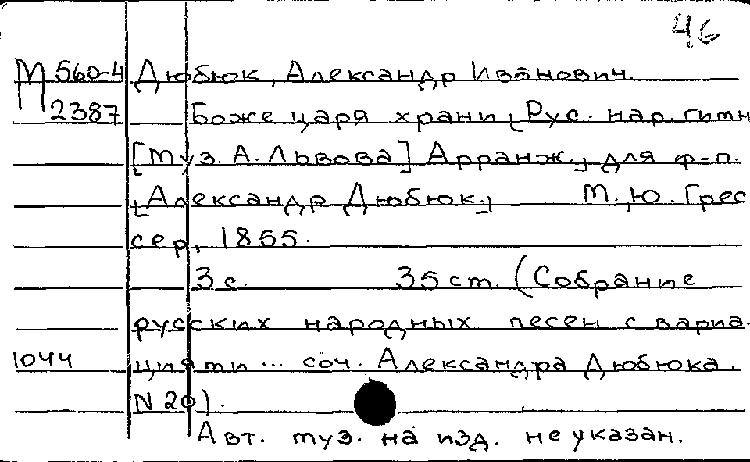 46
М 560-4 Дюбюк, Александр Иванович.
П 2387 Боже царя храни, Рус. нар. гимн
[Муз. А. Львова] Арранж., для ф-п.
[Александр Дюбюк,] М., Ю. Грес
сер, 1855.
3 с. 35 ст. (Собрание
русских народных песен с вариа-
1044 циями ... соч. Александра Дюбюка.
N 20).
Авт. муз. на изд. не указан.